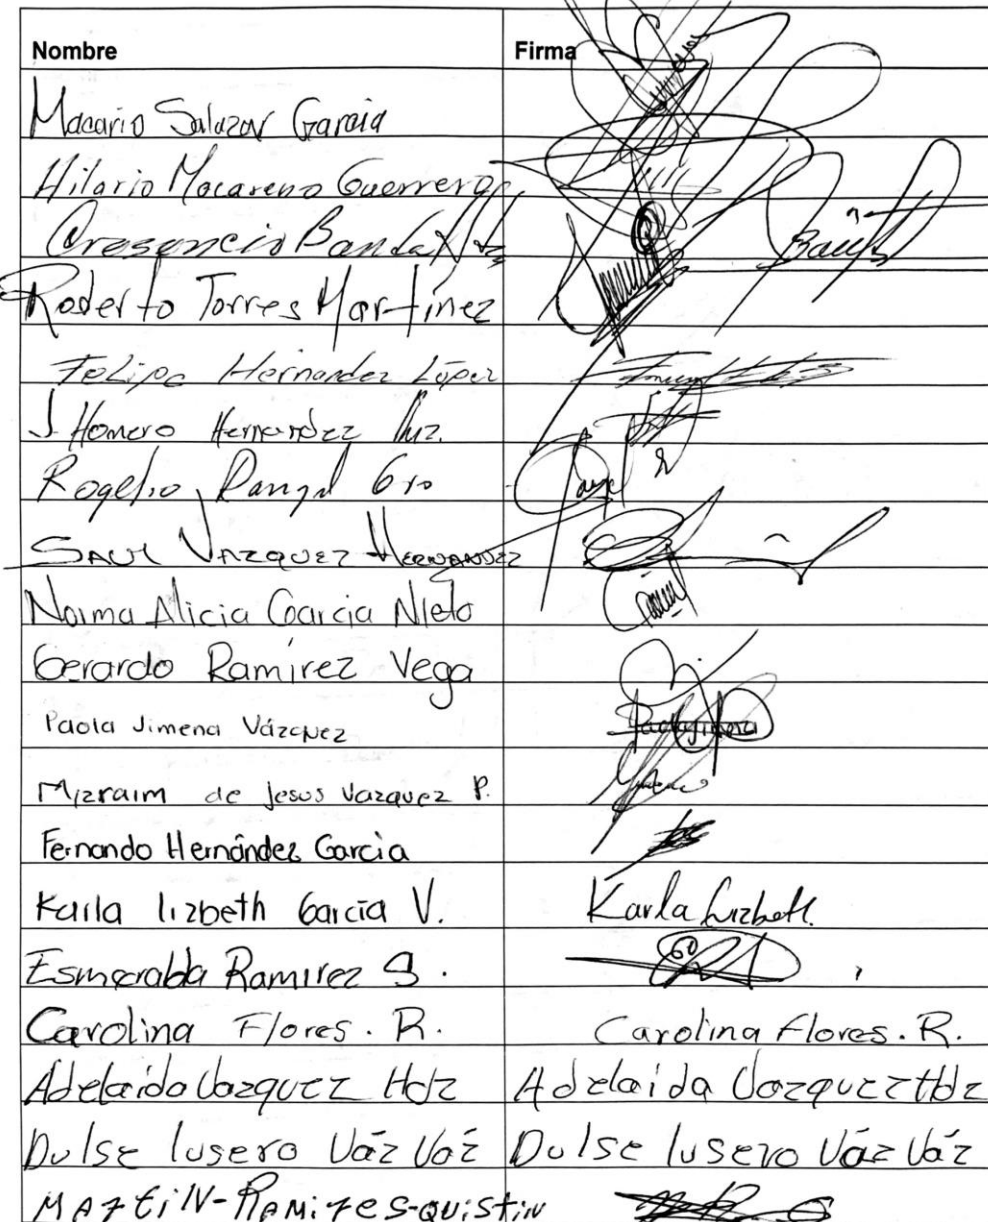 Nombre Firma
Macario Salazar Garcia
Hilario Macareno Guerrero
Cresencio Banda
Roberto Torres Martínez
Felipe Hernandez López
J. Homero Hernandez
Rogelio Rangel Gro
SAUL VAZQUEZ HERNANDEZ
Norma Alicia Garcia Nieto
Gerardo Ramírez Vega
Paola Jimena Vázquez
Mizraim de Jesus Vazquez P.
Fernando Hernández Garcia
Karla lizbeth Garcia V. Karla Lizbeth.
Esmeralda Ramirez S.
Carolina Flores. R. Carolina Flores. R.
Adelaida Vazquez Hdz Adelaida Vazquez Hdz
Dulse lusero Váz Váz Dulse lusero Váz Váz
MARtiN-RAMiReS-QUiStiN